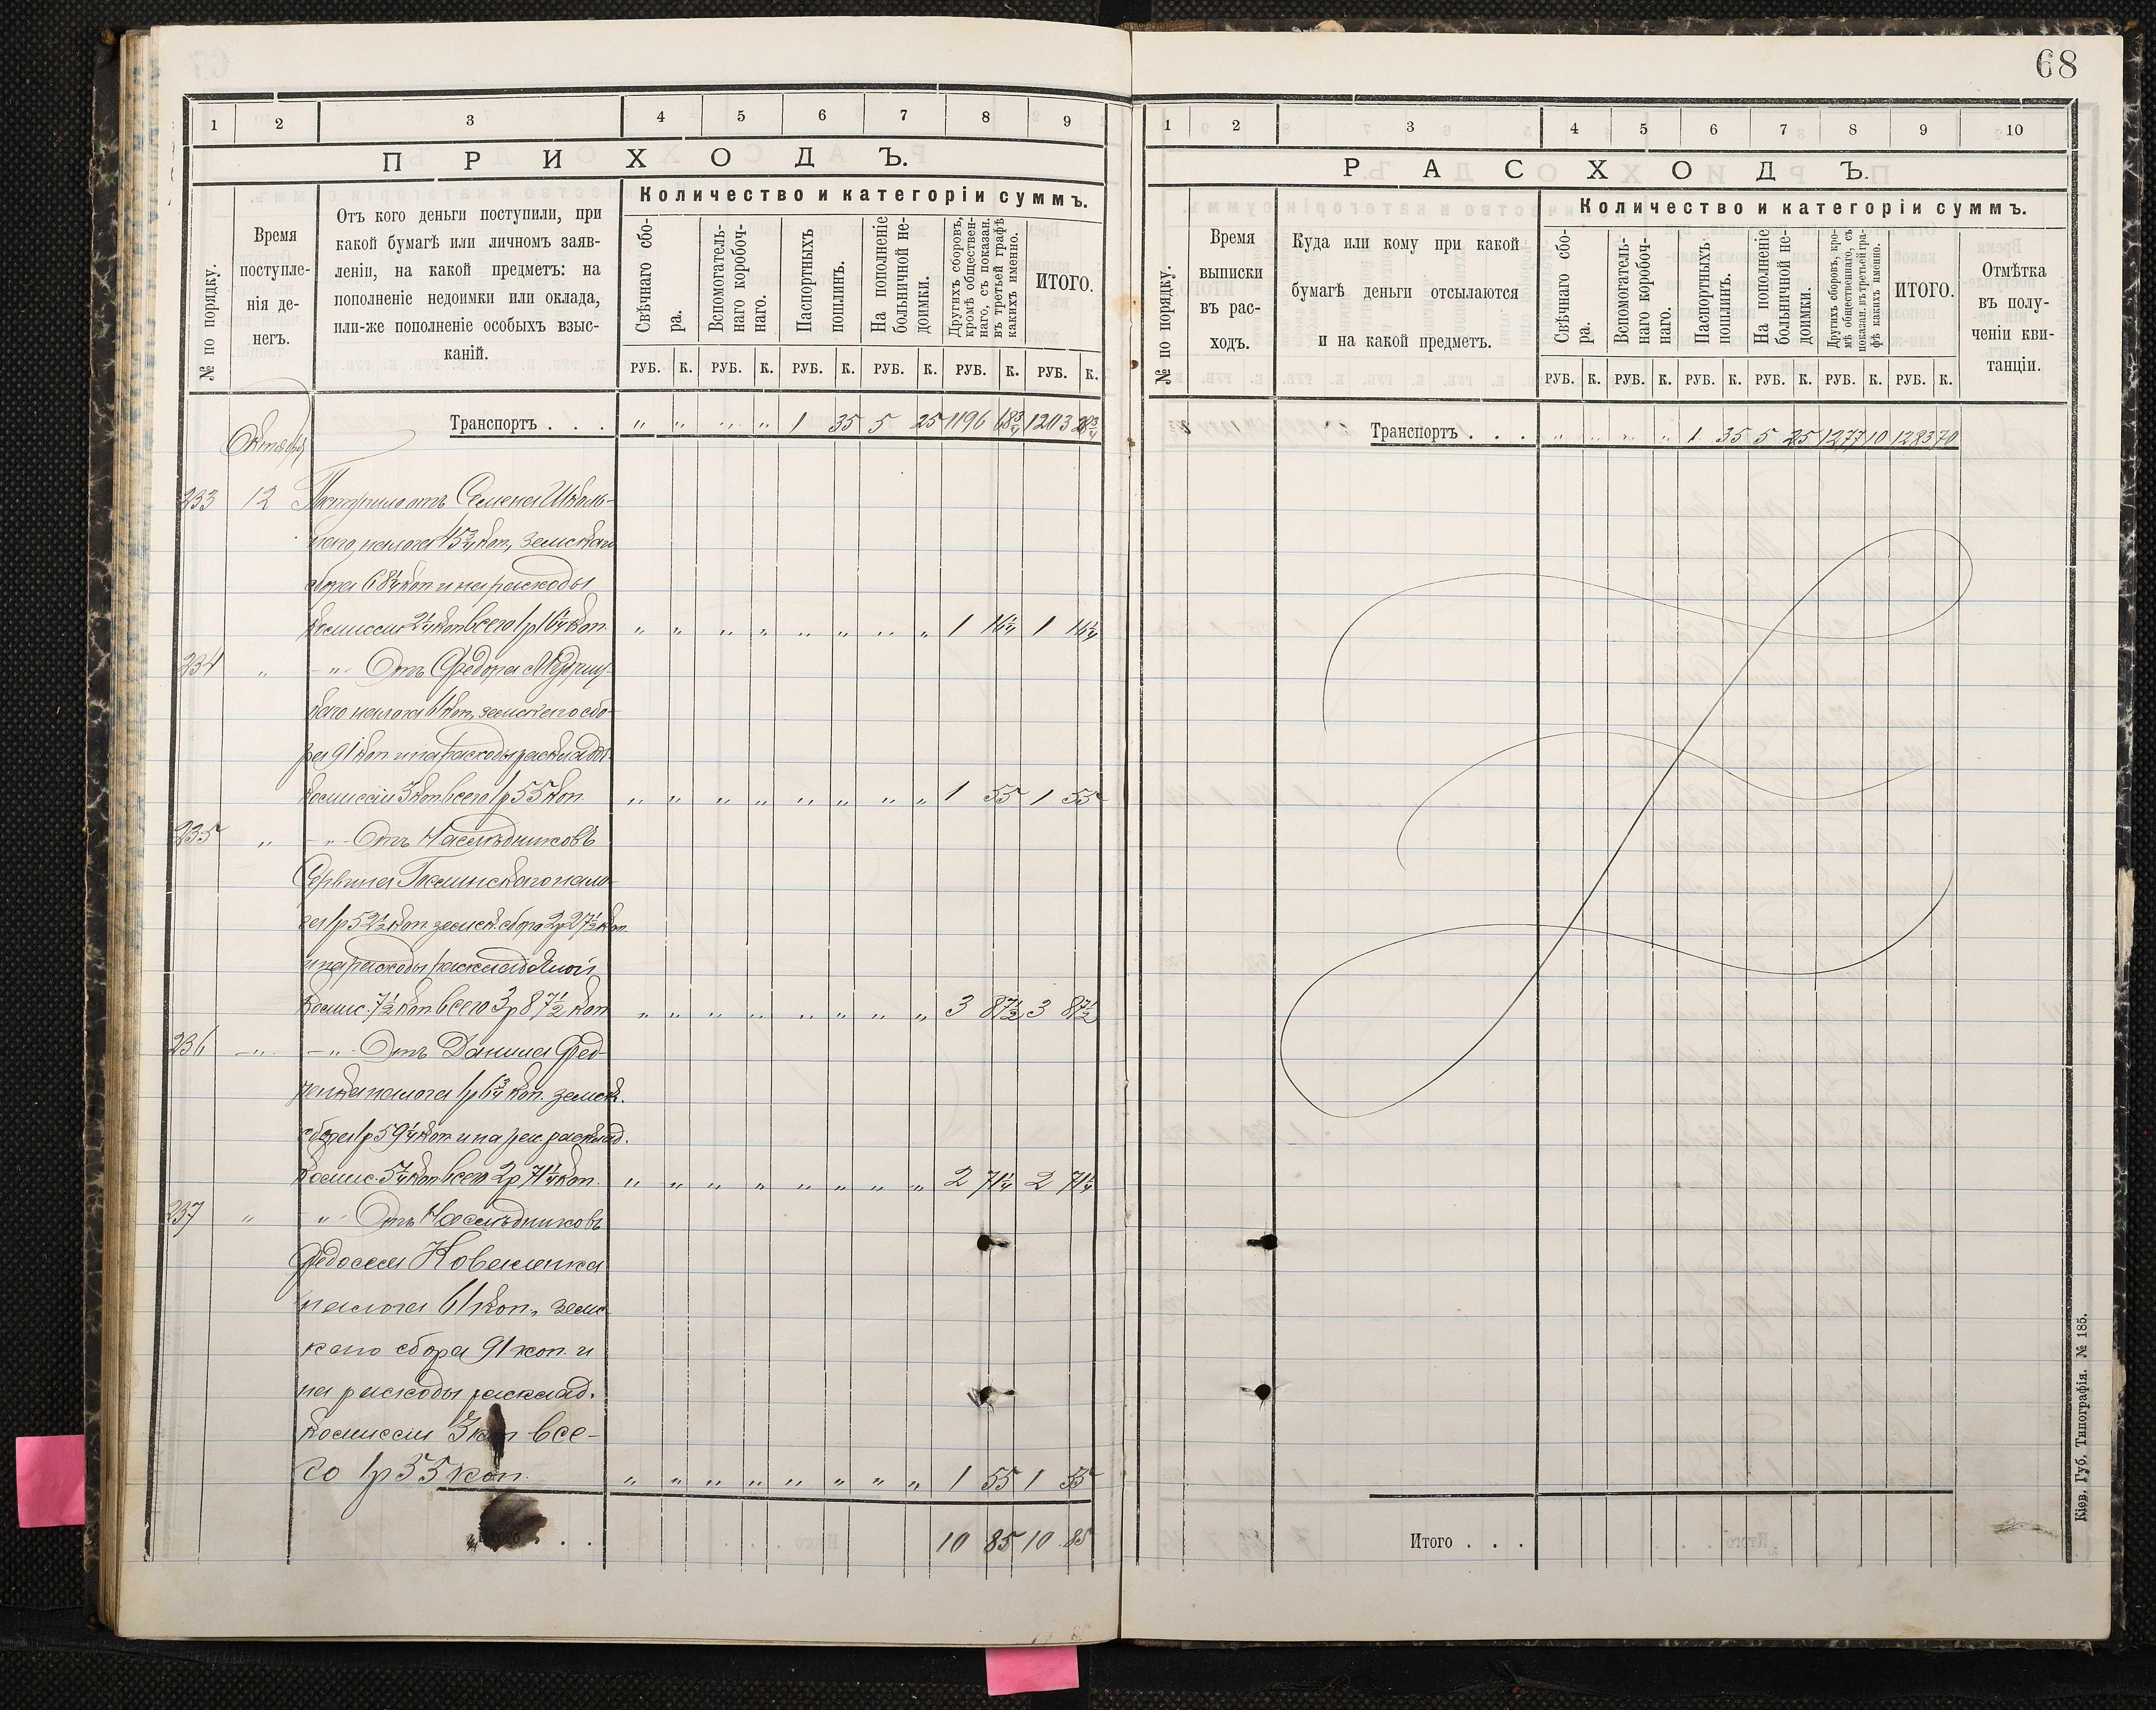 68
1 2 3 4 5 6 7 8 9
ПРИХОДЪ.
№ по порядку.
Время
поступле-
нія де-
негъ.
Отъ кого деньги поступили, при
какой бумагѣ или личномъ заяв-
леніи, на какой предметъ: на
пополненіе недоимки или оклада,
или-же пополненіе особыхъ взыс-
каній.
Количество и категоріи суммъ.
Свѣчнаго сбо-
ра.
Вспомогатель-
наго коробоч-
наго.
Паспортныхъ
пошлинъ.
На пополненіе
больничной не-
доимки.
Другихъ сборовъ,
кромѣ обществен-
наго, съ показан.
въ третьей графѣ
какихъ именно.
ИТОГО.
РУБ. К. РУБ. К. РУБ. К. РУБ. К. РУБ. К. РУБ. К.
Октября
Транспортъ . . . „ „ „ „ 1 35 5 25 1196 68¾ 1203 28¾
233 12 Поступило отъ Семена Школь-
наго налога 45¾ коп, земскаго
сбора 68¼ коп и на расходы
комиссіи 2¼ коп всего 1 р 16¼ коп. „ „ „ „ „ „ „ „ 1 16¼ 1 16¼
234 „ „ Отъ Федора
налога 61 коп, земскаго сбо-
ра 91 коп и на расходы расклад.
комиссіи 3 коп всего 1 р 55 коп. „ „ „ „ „ „ „ „ 1 55 1 55
235 „ „ Отъ Наслѣдниковъ
нало-
га 1 р 52½ коп земск. сбора 2 р 27½ коп.
и на расходы раскладочной
комис. 7½ коп всего 3 р 87½ коп „ „ „ „ „ „ „ „ 3 87½ 3 87½
236 „ „ Отъ Данила Фед-
ренка налога 1 р 6¾ коп. земск.
сбора 1 р 59¼ коп и на рас. расклад.
комис. 5¼ коп всего 2 р 71¼ коп. „ „ „ „ „ „ „ „ 2 71¼ 2 71¼
237 „ „ Отъ Наслѣдниковъ
Федосея Коваленка
налога 61 коп, земс-
каго сбора 91 коп. и
на расходы расклад.
комиссіи 3 коп все-
го 1 р 55 коп. „ „ „ „ „ „ „ „ 1 55 1 55
Итого . . . 10 85 10 85
1 2 3 4 5 6 7 8 9 10
РАСХОДЪ.
№ по порядку.
Время
выписки
въ рас-
ходъ.
Куда или кому при какой
бумагѣ деньги отсылаются
и на какой предметъ.
Количество и категоріи суммъ.
Свѣчнаго сбо-
ра.
Вспомогатель-
наго коробоч-
наго.
Паспортныхъ
пошлинъ.
На пополненіе
больничной не-
доимки.
Другихъ сборовъ, кро-
мѣ общественнаго, съ
показан. въ третьей гра-
фѣ какихъ именно.
ИТОГО.
Отмѣтка
въ полу-
ченіи кви-
танціи.
РУБ. К. РУБ. К. РУБ. К. РУБ. К. РУБ. К. РУБ. К.
Транспортъ . . . „ „ „ „ 1 35 5 25 1277 10 1283 70
Итого . . .
Кіев. Губ. Типографія. № 185.